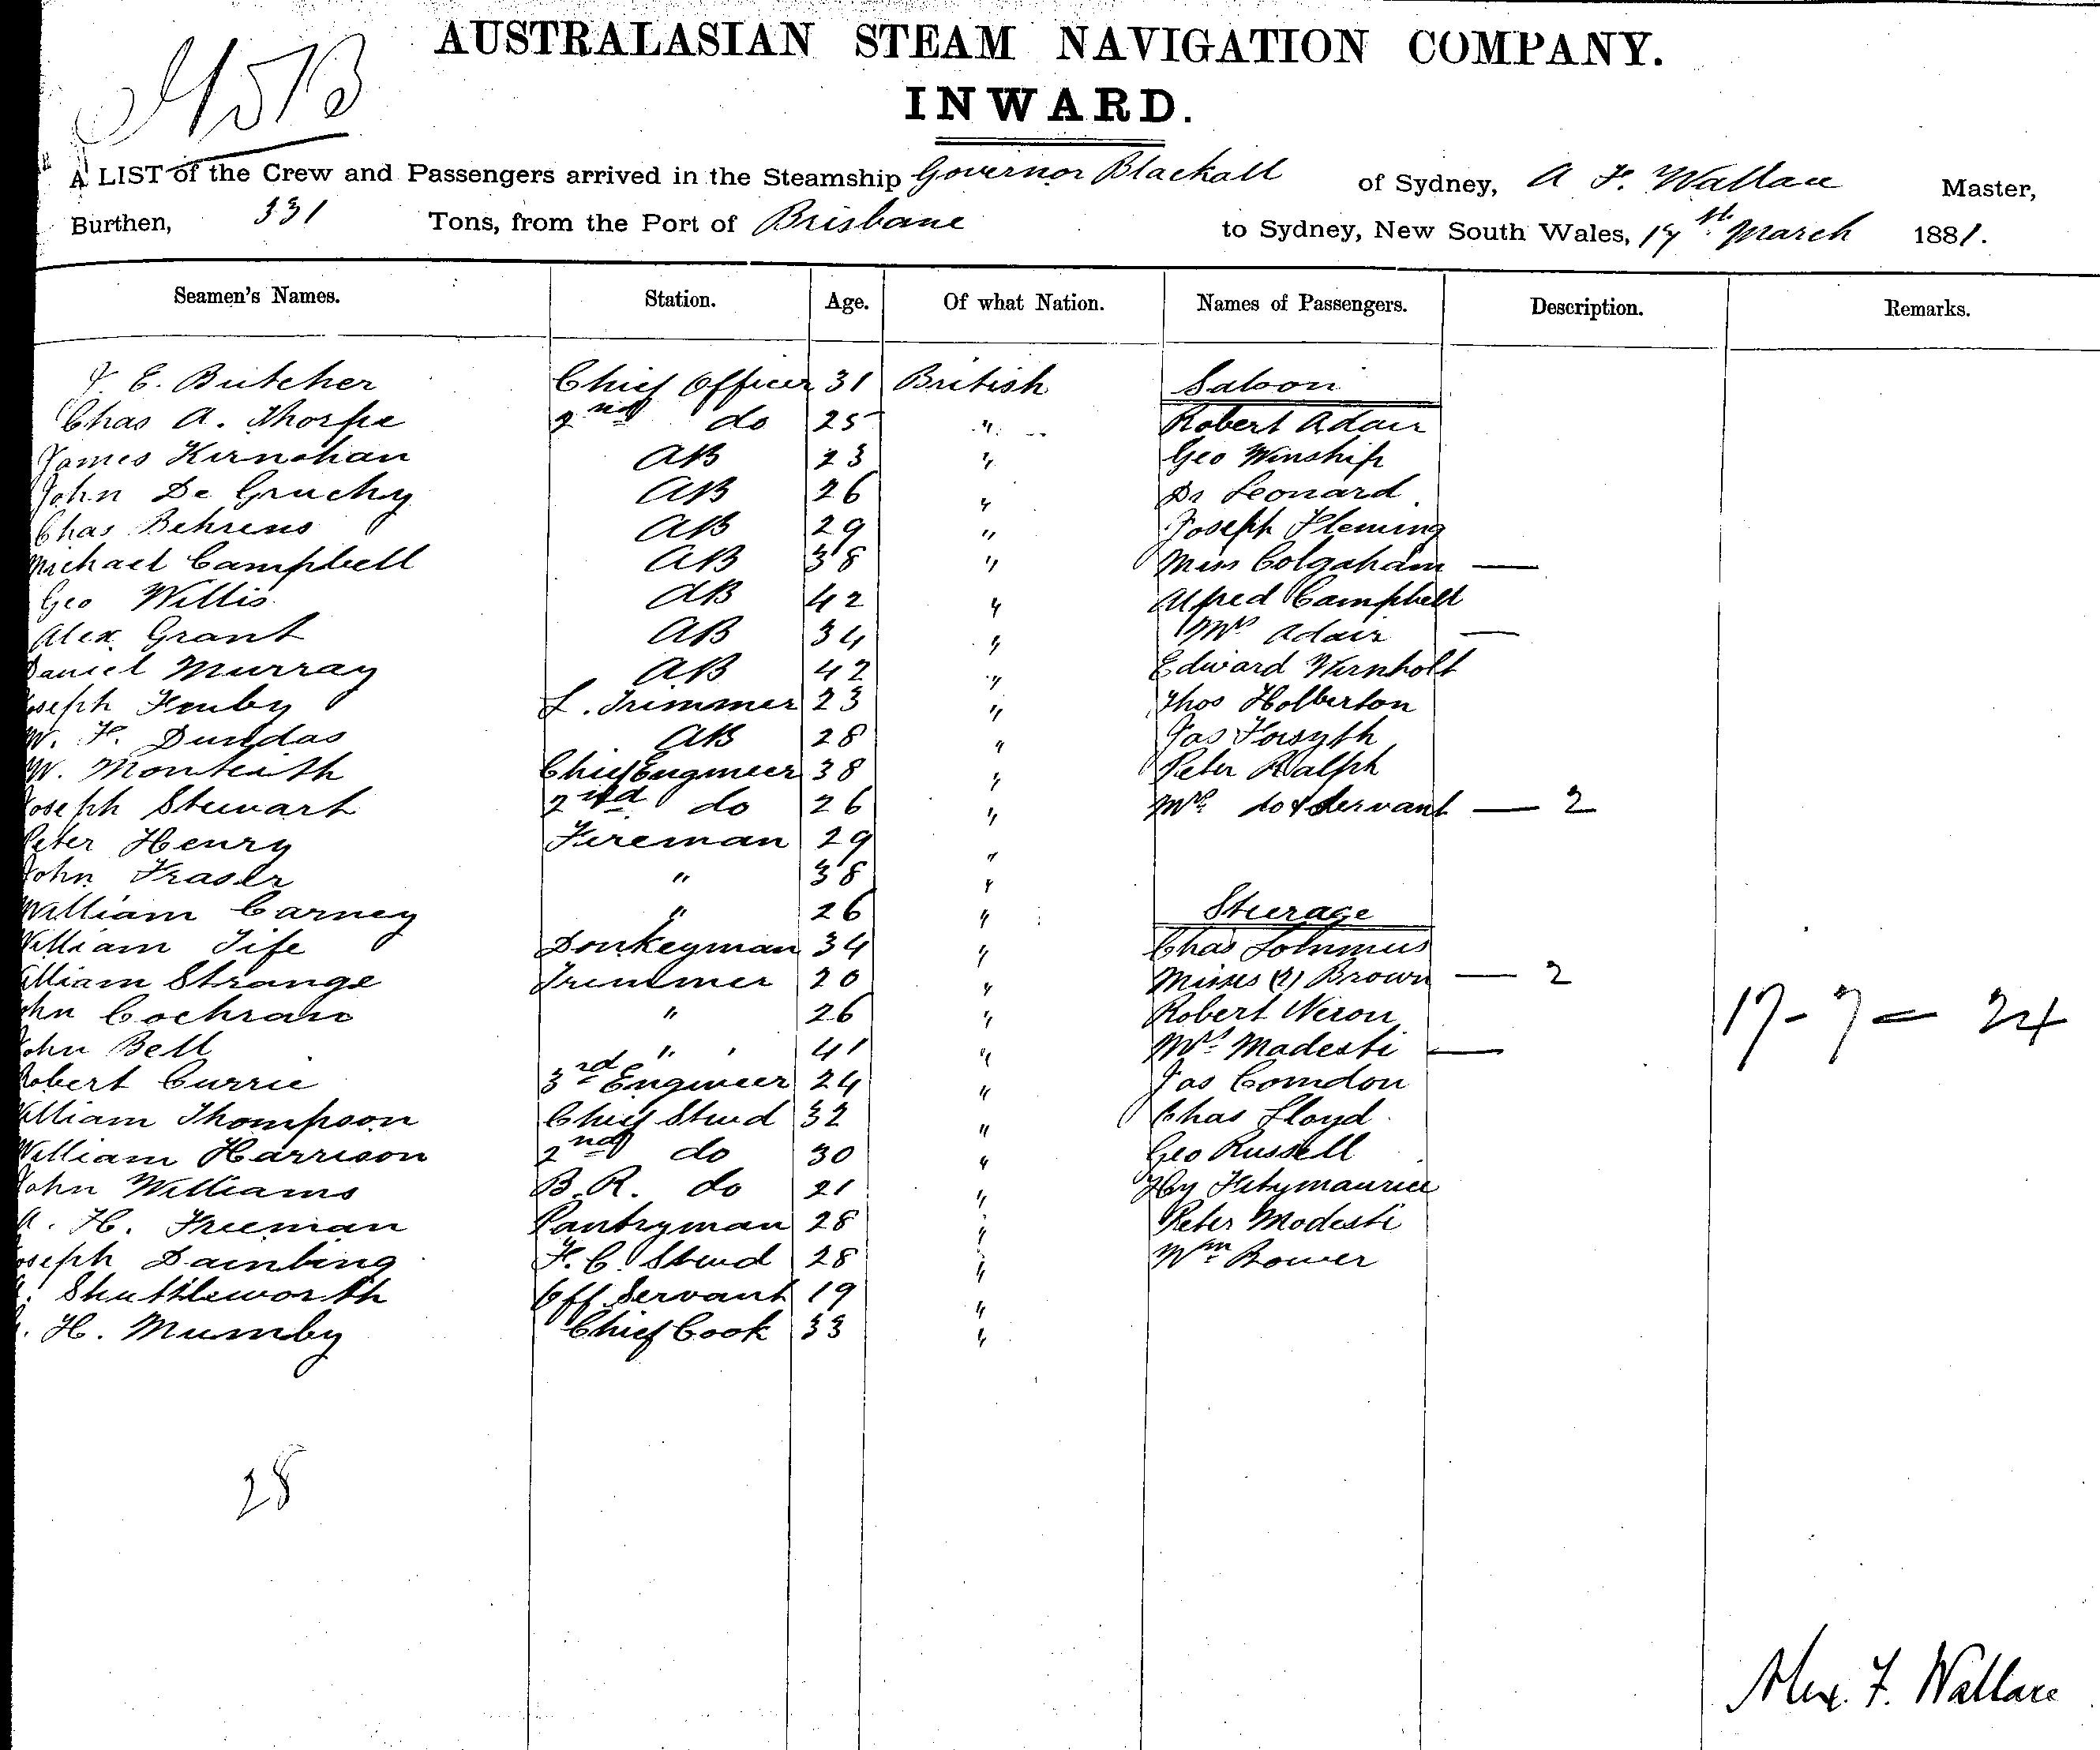 AUSTRALASIAN STEAM NAVIGATION COMPANY.
INWARD.
A LIST of the Crew and Passengers arrived in the Steamship Governor Blackall of Sydney, A F. Wallace Master,
Burthen, 331 Tons, from the Port of Brisbane to Sydney, New South Wales, 17 March 1881.
Seamen's Names. Station. Age. Of what Nation. Names of Passengers. Description. Remarks.
J E. Butcher Chief Officer 31 British Saloon
Chas A. Thorpe 2nd do 25 " Robert Adair
James Kirnohan AB 23 " Geo Winship
John De Gruchy AB 26 " Dr Leonard
Chas Behrens AB 29 " Joseph Fleming
Michael Campbell AB 38 " Miss Colgaham —
Geo Willis AB 42 " Alfred Campbell
Alex Grant AB 34 " Mrs Adair —
Daniel Murray AB 42 " Edward Wernholt
oseph L. Trimmer 23 " Thos Holberton
W. F. Dundas AB 28 " Jas Forsyth
W. Monteith Chief Engineer 38 " Peter Ralph
Joseph Stewart 2nd do 26 " Mrs do & Servant — 2
Peter Henry Fireman 29 "
John Fraser " 38 "
William Carney " 26 " Steerage
William Fife Donkeyman 34 " Chas
illiam Strange Trimmer 20 " Misses (2) Brown — 2
ohn Cochrane " 26 " Robert
ohn Bell " 41 " Mrs Madesti —
Robert Currie 3rd Engineer 24 " Jas Comdon
William Thompson Chief Stwd 32 " Chas Lloyd
William Harrison 2nd do 30 " Geo Russell
John Williams B.R. do 21 " Hy Fitzmaurice
A. H. Freeman Pantryman 28 " Peter Modesti
oseph F. C. Stwd 28 " Wm Bower
Shuttleworth Off Servant 19 "
. H. Mumby Chief Cook 33 "
17 - 7 = 24
28
Alex. F. Wallace